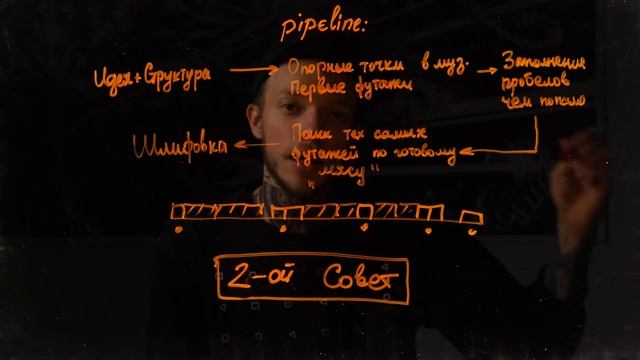 pipeline:
Идея+Структура
Опорные точки в муз.
Первые футажи
Заполнение
пробелов
чем попало
Поиск тех самых
футажей по готовому
"мясу"
Шлифовка
2-ой Совет